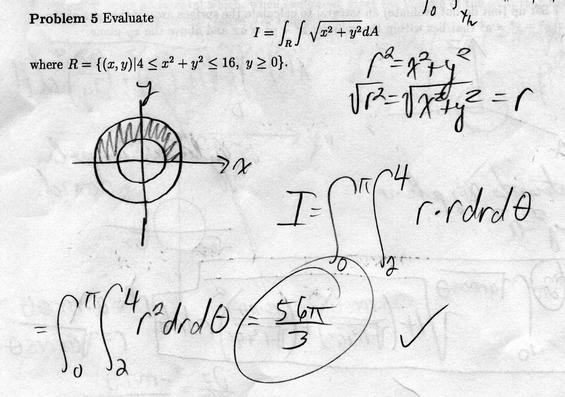 ∫₀ ∫ y/x/2
Problem 5 Evaluate
I = ∫_R ∫ √(x² + y²) dA
where R = {(x, y)|4 ≤ x² + y² ≤ 16, y ≥ 0}.
r² = x² + y²
√r² = √(x² + y²) = r
y
x
I = ∫₀^π ∫₂⁴ r · r dr dθ
= ∫₀^π ∫₂⁴ r² dr dθ = 56π/3 ✓